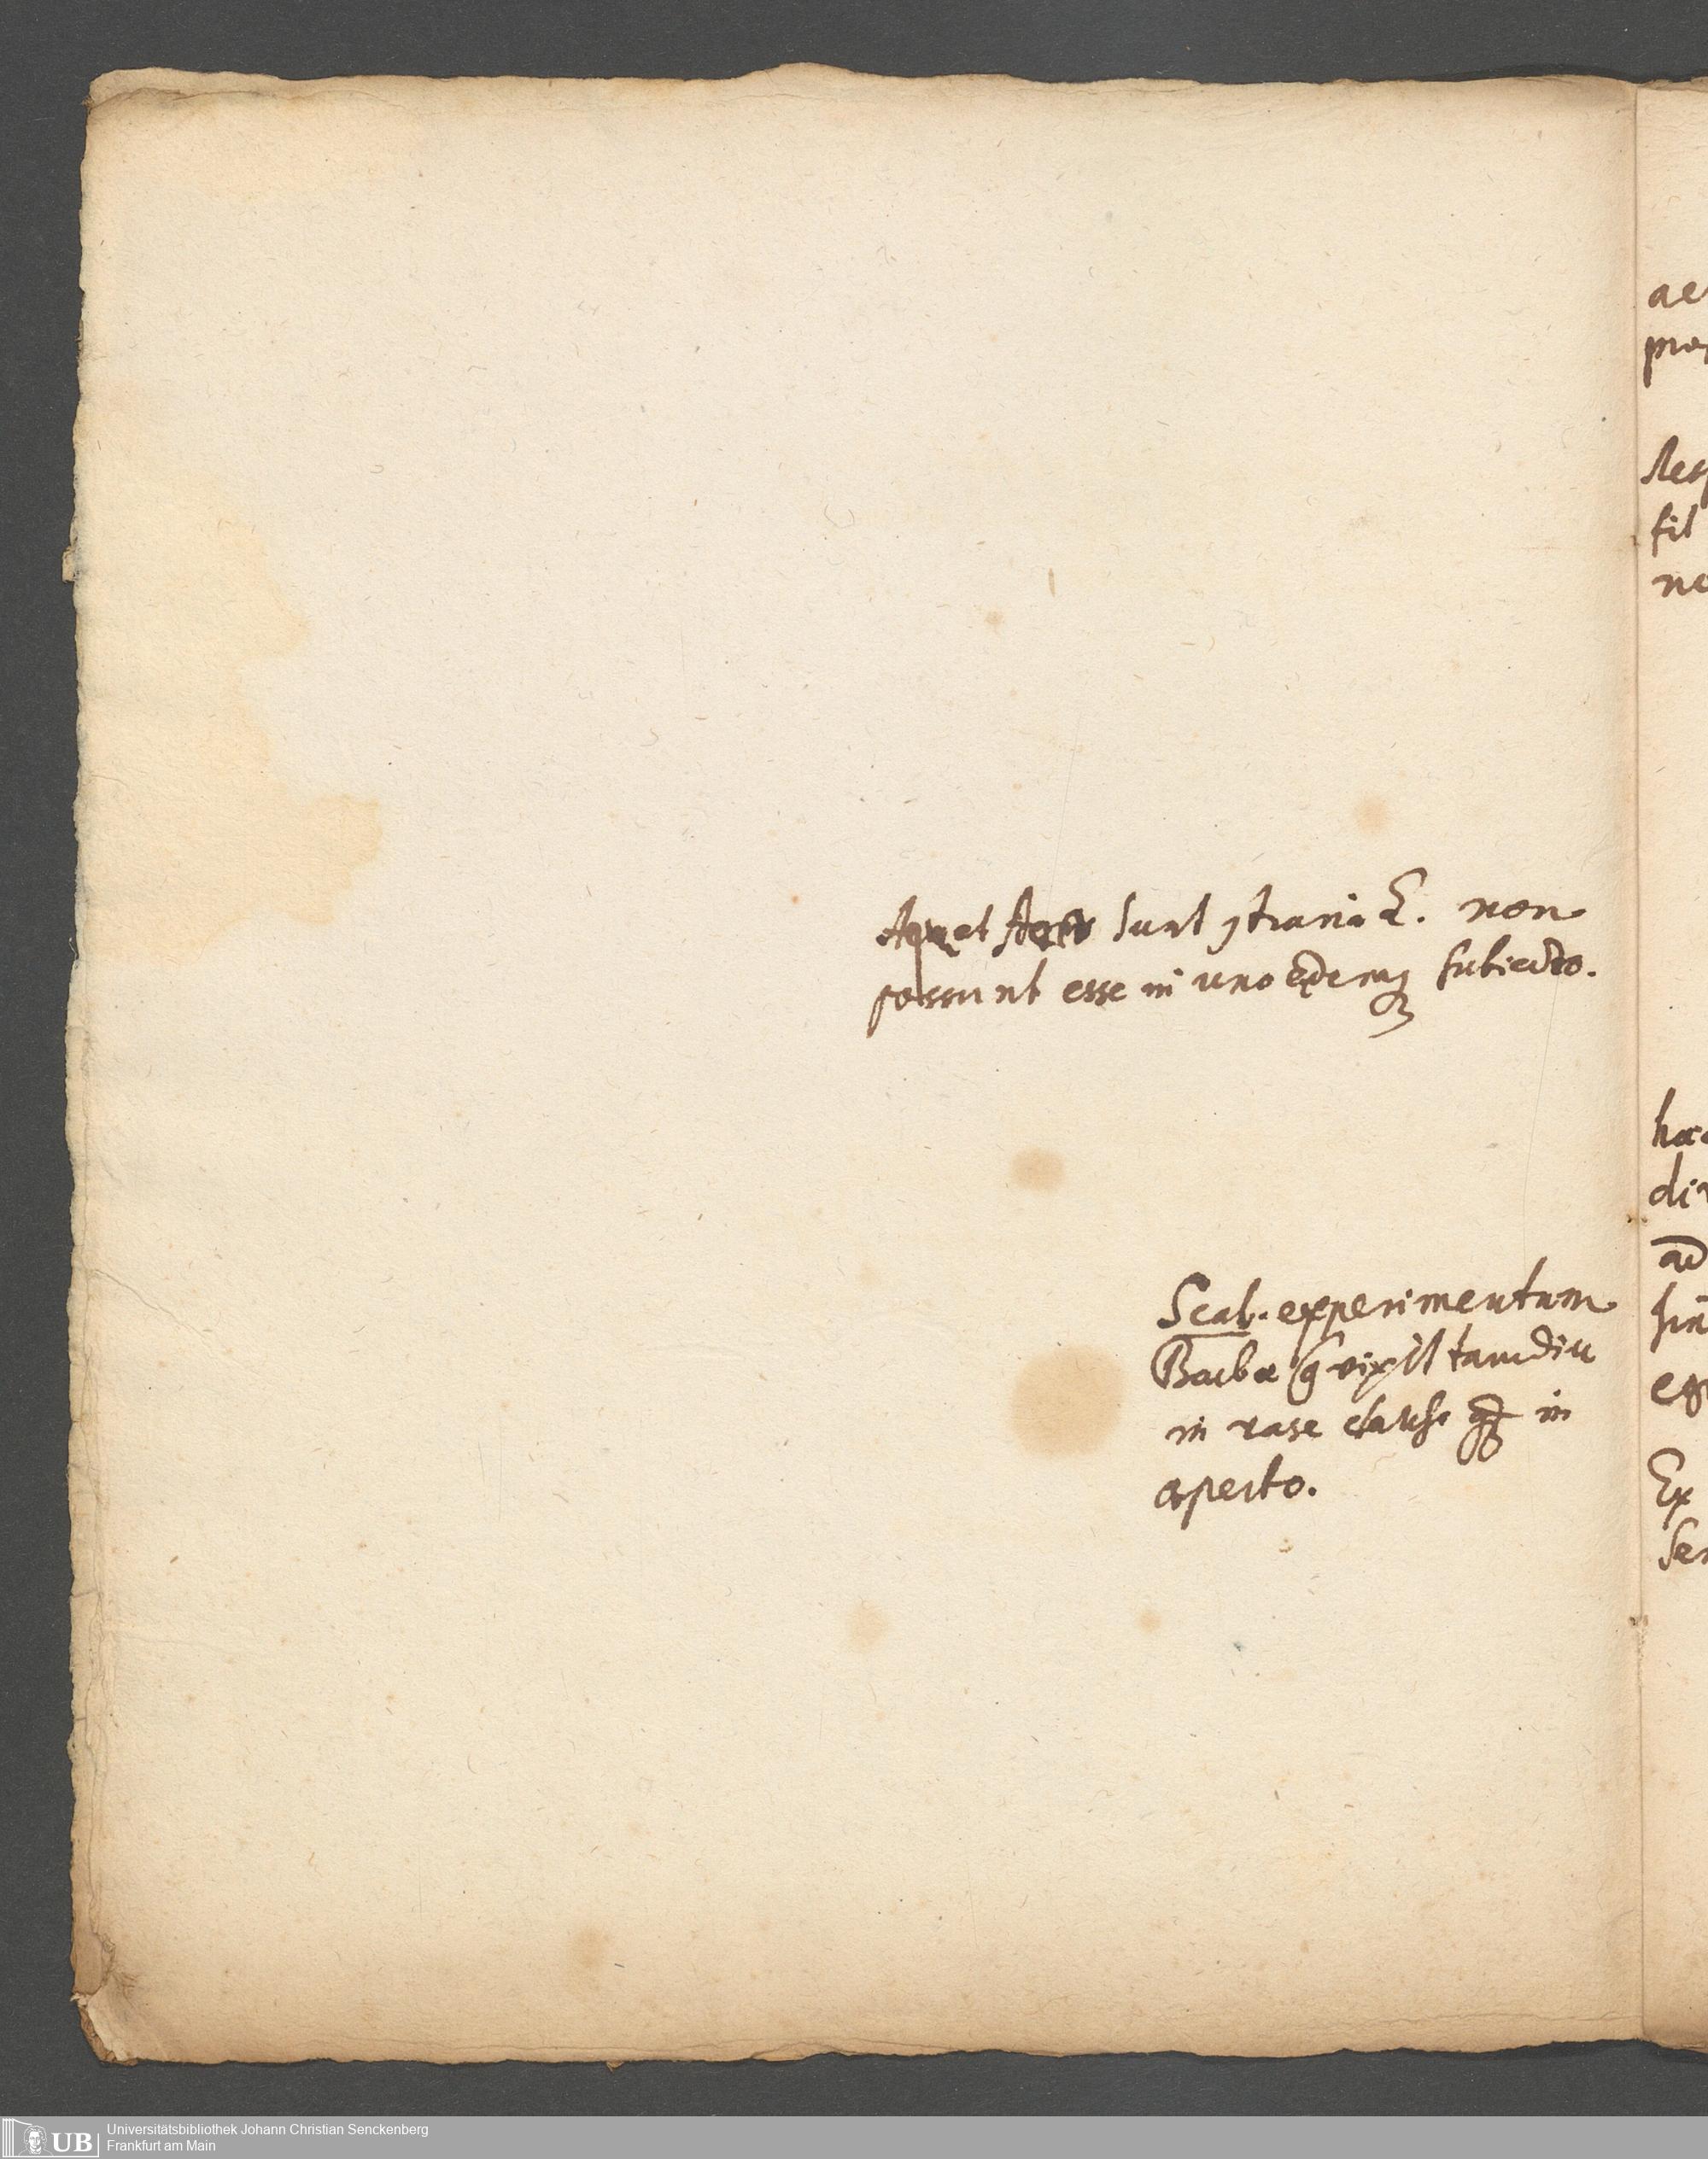 Aqua et Aer sunt ꝯtraria E. non
possunt esse in uno eodemq; subiecto.
Scal. experimentum
Barbae q̃ vixit tamdiu
in vase clauso in
aperto.
ae
pro
Res
fit
ne
hae
di
ad
hin
Ex
Se
Universitätsbibliothek Johann Christian Senckenberg
Frankfurt am Main
UB